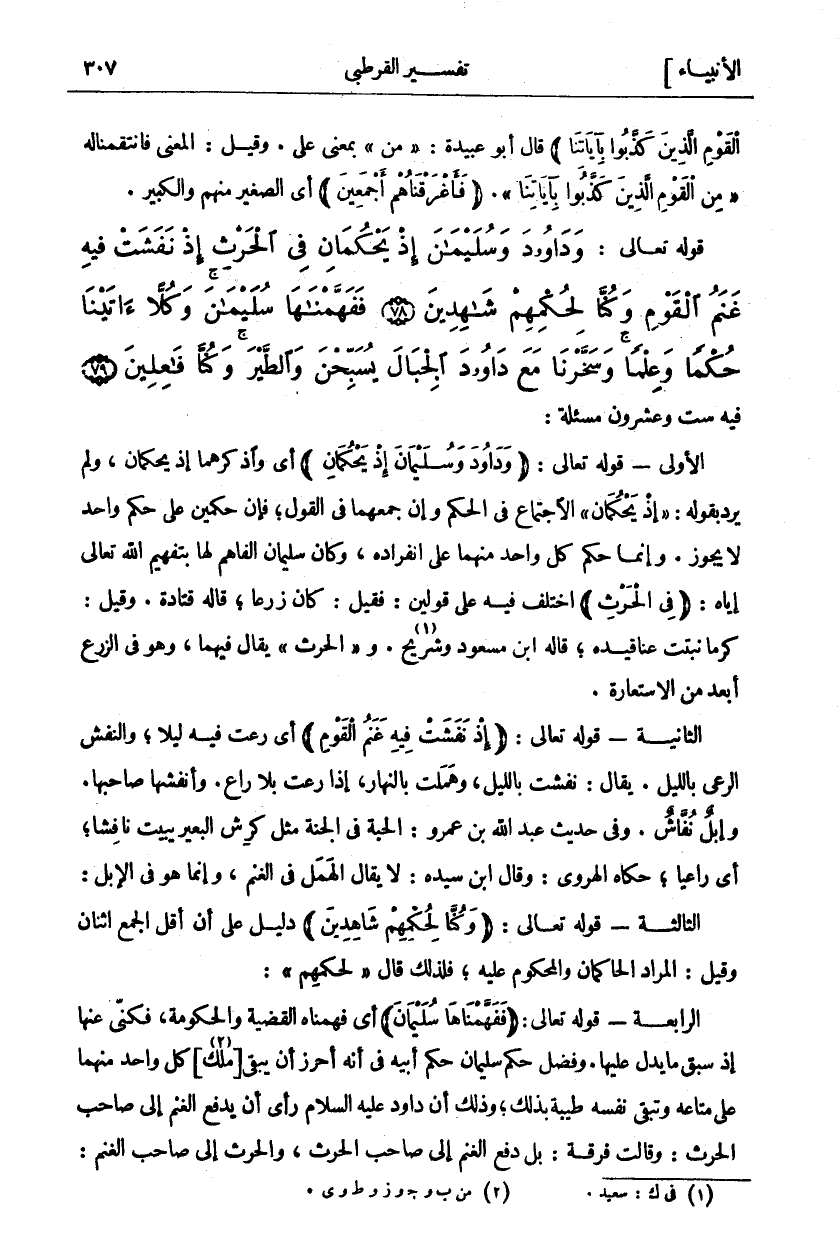 الأنبياء ] تفسير القرطبي ٣٠٧
الْقَوْمِ الَّذِينَ كَذَّبُوا بِآيَاتِنَا ) قال أبو عبيدة : « من » بمعنى على . وقيل : المعنى فانتقمنا له
« مِن الْقَوْمِ الَّذِينَ كَذَّبُوا بِآيَاتِنَا » . ( فَأَغْرَقْنَاهُمْ أَجْمَعِينَ ) أى الصغير منهم والكبير .
قوله تعالى : وَدَاوُۥدَ وَسُلَيْمَٰنَ إِذْ يَحْكُمَانِ فِى ٱلْحَرْثِ إِذْ نَفَشَتْ فِيهِ
غَنَمُ ٱلْقَوْمِ وَكُنَّا لِحُكْمِهِمْ شَٰهِدِينَ ﴿٧٨﴾ فَفَهَّمْنَٰهَا سُلَيْمَٰنَ ۚ وَكُلًّا ءَاتَيْنَا
حُكْمًا وَعِلْمًا ۚ وَسَخَّرْنَا مَعَ دَاوُۥدَ ٱلْجِبَالَ يُسَبِّحْنَ وَٱلطَّيْرَ ۚ وَكُنَّا فَٰعِلِينَ ﴿٧٩﴾
فيه ست وعشرون مسئلة :
الأولى — قوله تعالى : ( وَدَاوُدَ وَسُلَيْمَانَ إِذْ يَحْكُمَانِ ) أى وأذكرهما إذ يحكمان ، ولم
يرد بقوله : « إِذْ يَحْكُمَان » الأجتماع فى الحكم وإن جمعهما فى القول ؛ فإن حكمين على حكم واحد
لا يجوز . وإنما حكم كل واحد منهما على انفراده ، وكان سليمان الفاهم لها بتفهيم الله تعالى
إياه : ( فِى الْحَرْثِ ) اختلف فيه على قولين : فقيل : كان زرعا ؛ قاله قتادة . وقيل :
كرما نبتت عناقيده ؛ قاله ابن مسعود وشريح (١) . و « الحرث » يقال فيهما ، وهو فى الزرع
أبعد من الاستعارة .
الثانية — قوله تعالى : ( إِذْ نَفَشَتْ فِيهِ غَنَمُ الْقَوْمِ ) أى رعت فيه ليلا ؛ والنفش
الرعى بالليل . يقال : نفشت بالليل ، وهَمَلت بالنهار ، إذا رعت بلا راع . وأنفشها صاحبها .
وإبلٌ نُفَّاشٌ . وفى حديث عبد الله بن عمرو : الحبة فى الجنة مثل كَرِش البعير يبيت نافشا ؛
أى راعيا ؛ حكاه الهروى : وقال ابن سيده : لا يقال الهَمَل فى الغنم ، وإنما هو فى الإبل :
الثالثة — قوله تعالى : ( وَكُنَّا لِحُكْمِهِمْ شَاهِدِينَ ) دليل على أن أقل الجمع اثنان
وقيل : المراد الحاكمان والمحكوم عليه ؛ فلذلك قال « لحكمهم » :
الرابعة — قوله تعالى : ( فَفَهَّمْنَاهَا سُلَيْمَانَ ) أى فهمناه القضية والحكومة ، فكنّى عنها
إذ سبق ما يدل عليها . وفضل حكم سليمان حكم أبيه فى أنه أحرز أن يبقى [ ملك ] (٢) كل واحد منهما
على متاعه وتبقى نفسه طيبة بذلك ؛ وذلك أن داود عليه السلام رأى أن يدفع الغنم إلى صاحب
الحرث : وقالت فرقة : بل دفع الغنم إلى صاحب الحرث ، والحرث إلى صاحب الغنم :
(١) فى ك : سعيد . (٢) من ب و جـ و ز و ط و ى .